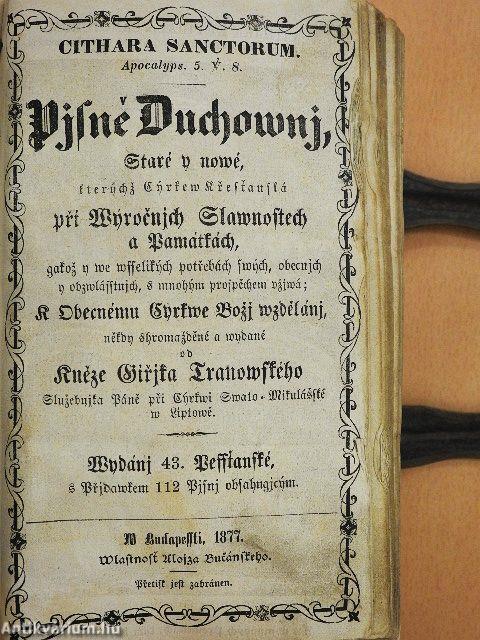 CITHARA SANCTORUM.
Apocalyps. 5. V. 8.
Pjſně Duchownj,
Staré y nowé,
kterýchž Cýrkew Křeſťanſká
při Wýročnjch Slawnoſtech
a Památkách,
gakož y we wſſelikých potřebách ſwých, obecnjch
y obzwláſſtnjch, s mnohým proſpěchem vžjwá;
K Obecnému Cýrkwe Božj wzdělánj,
někdy shromážděné a wydané
od
Kněze Giřjka Tranowſkého
Služebnjka Páně při Cýrkwi Swato-Mikuláſſſké
w Liptowě.
Wydánj 43. Peſſťanſké,
s Přjdawkem 112 Pjſnj obſahugjcým.
W Budapeſſti, 1877.
Wlaſtnoſt Alojza Bučánſkeho.
Přetiſk jeſt zabránen.
Antikvarium.hu